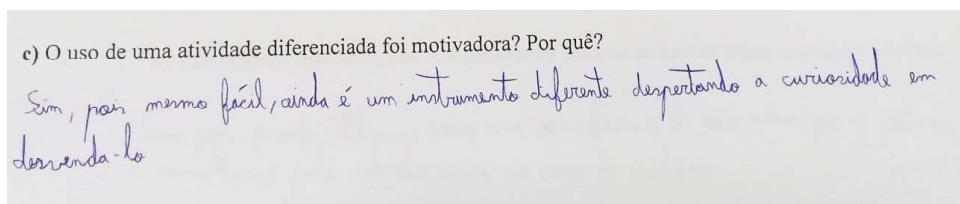 c) O uso de uma atividade diferenciada foi motivadora? Por quê?
Sim, pois mesmo fácil, ainda é um instrumento diferente despertando a curiosidade em
desvenda-lo